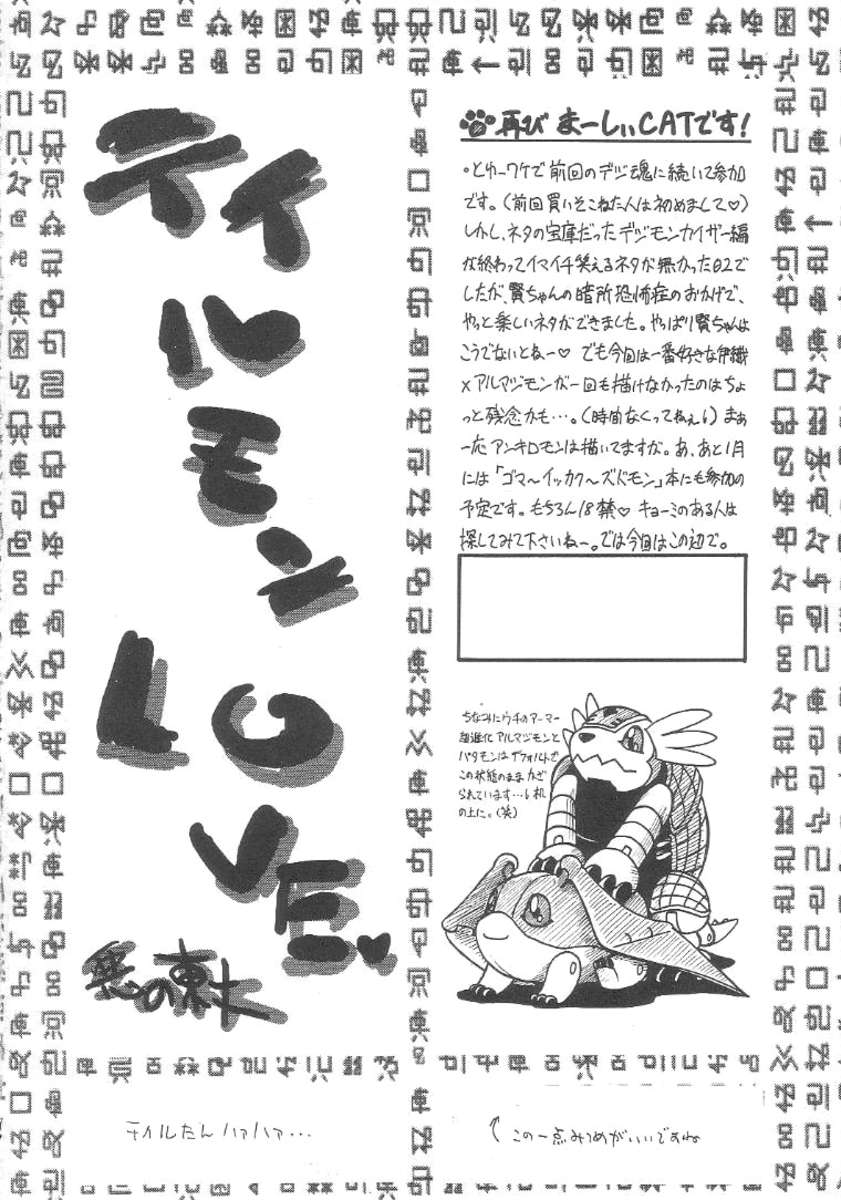 テイ
ルモン
LOVE.
悠の東士
テイルたんハァハァ…
再び まーしぃCATです!
・とゆーワケで前回のデジ魂に続いて参加
です。(前回買いそこねた人は初めまして♡)
しかし、ネタの宝庫だったデジモンカイザー編
が終わってイマイチ笑えるネタが無かった02で
したが、賢ちゃんの暗所恐怖症のおかげで、
やっと楽しいネタができました。やっぱり賢ちゃんは
こうでないとねー♡ でも今回は一番好きな伊織
×アルマジモンが一回も描けなかったのはちょ
っと残念かも…。(時間なくってねぇ) まぁ
一応アンキロモンは描いてますが。あ、あと1月
には「ゴマ〜イッカク〜ズドモン」本にも参加の
予定です。もちろん18禁♡ キョーミのある人は
探してみて下さいねー。では今回はこの辺で。
ちなみにウチのアーマー
超進化アルマジモンと
パタモンはデフォルトで
この状態のままかざ
られています…机
の上に。(笑)
↑この一点みつめがいいですね